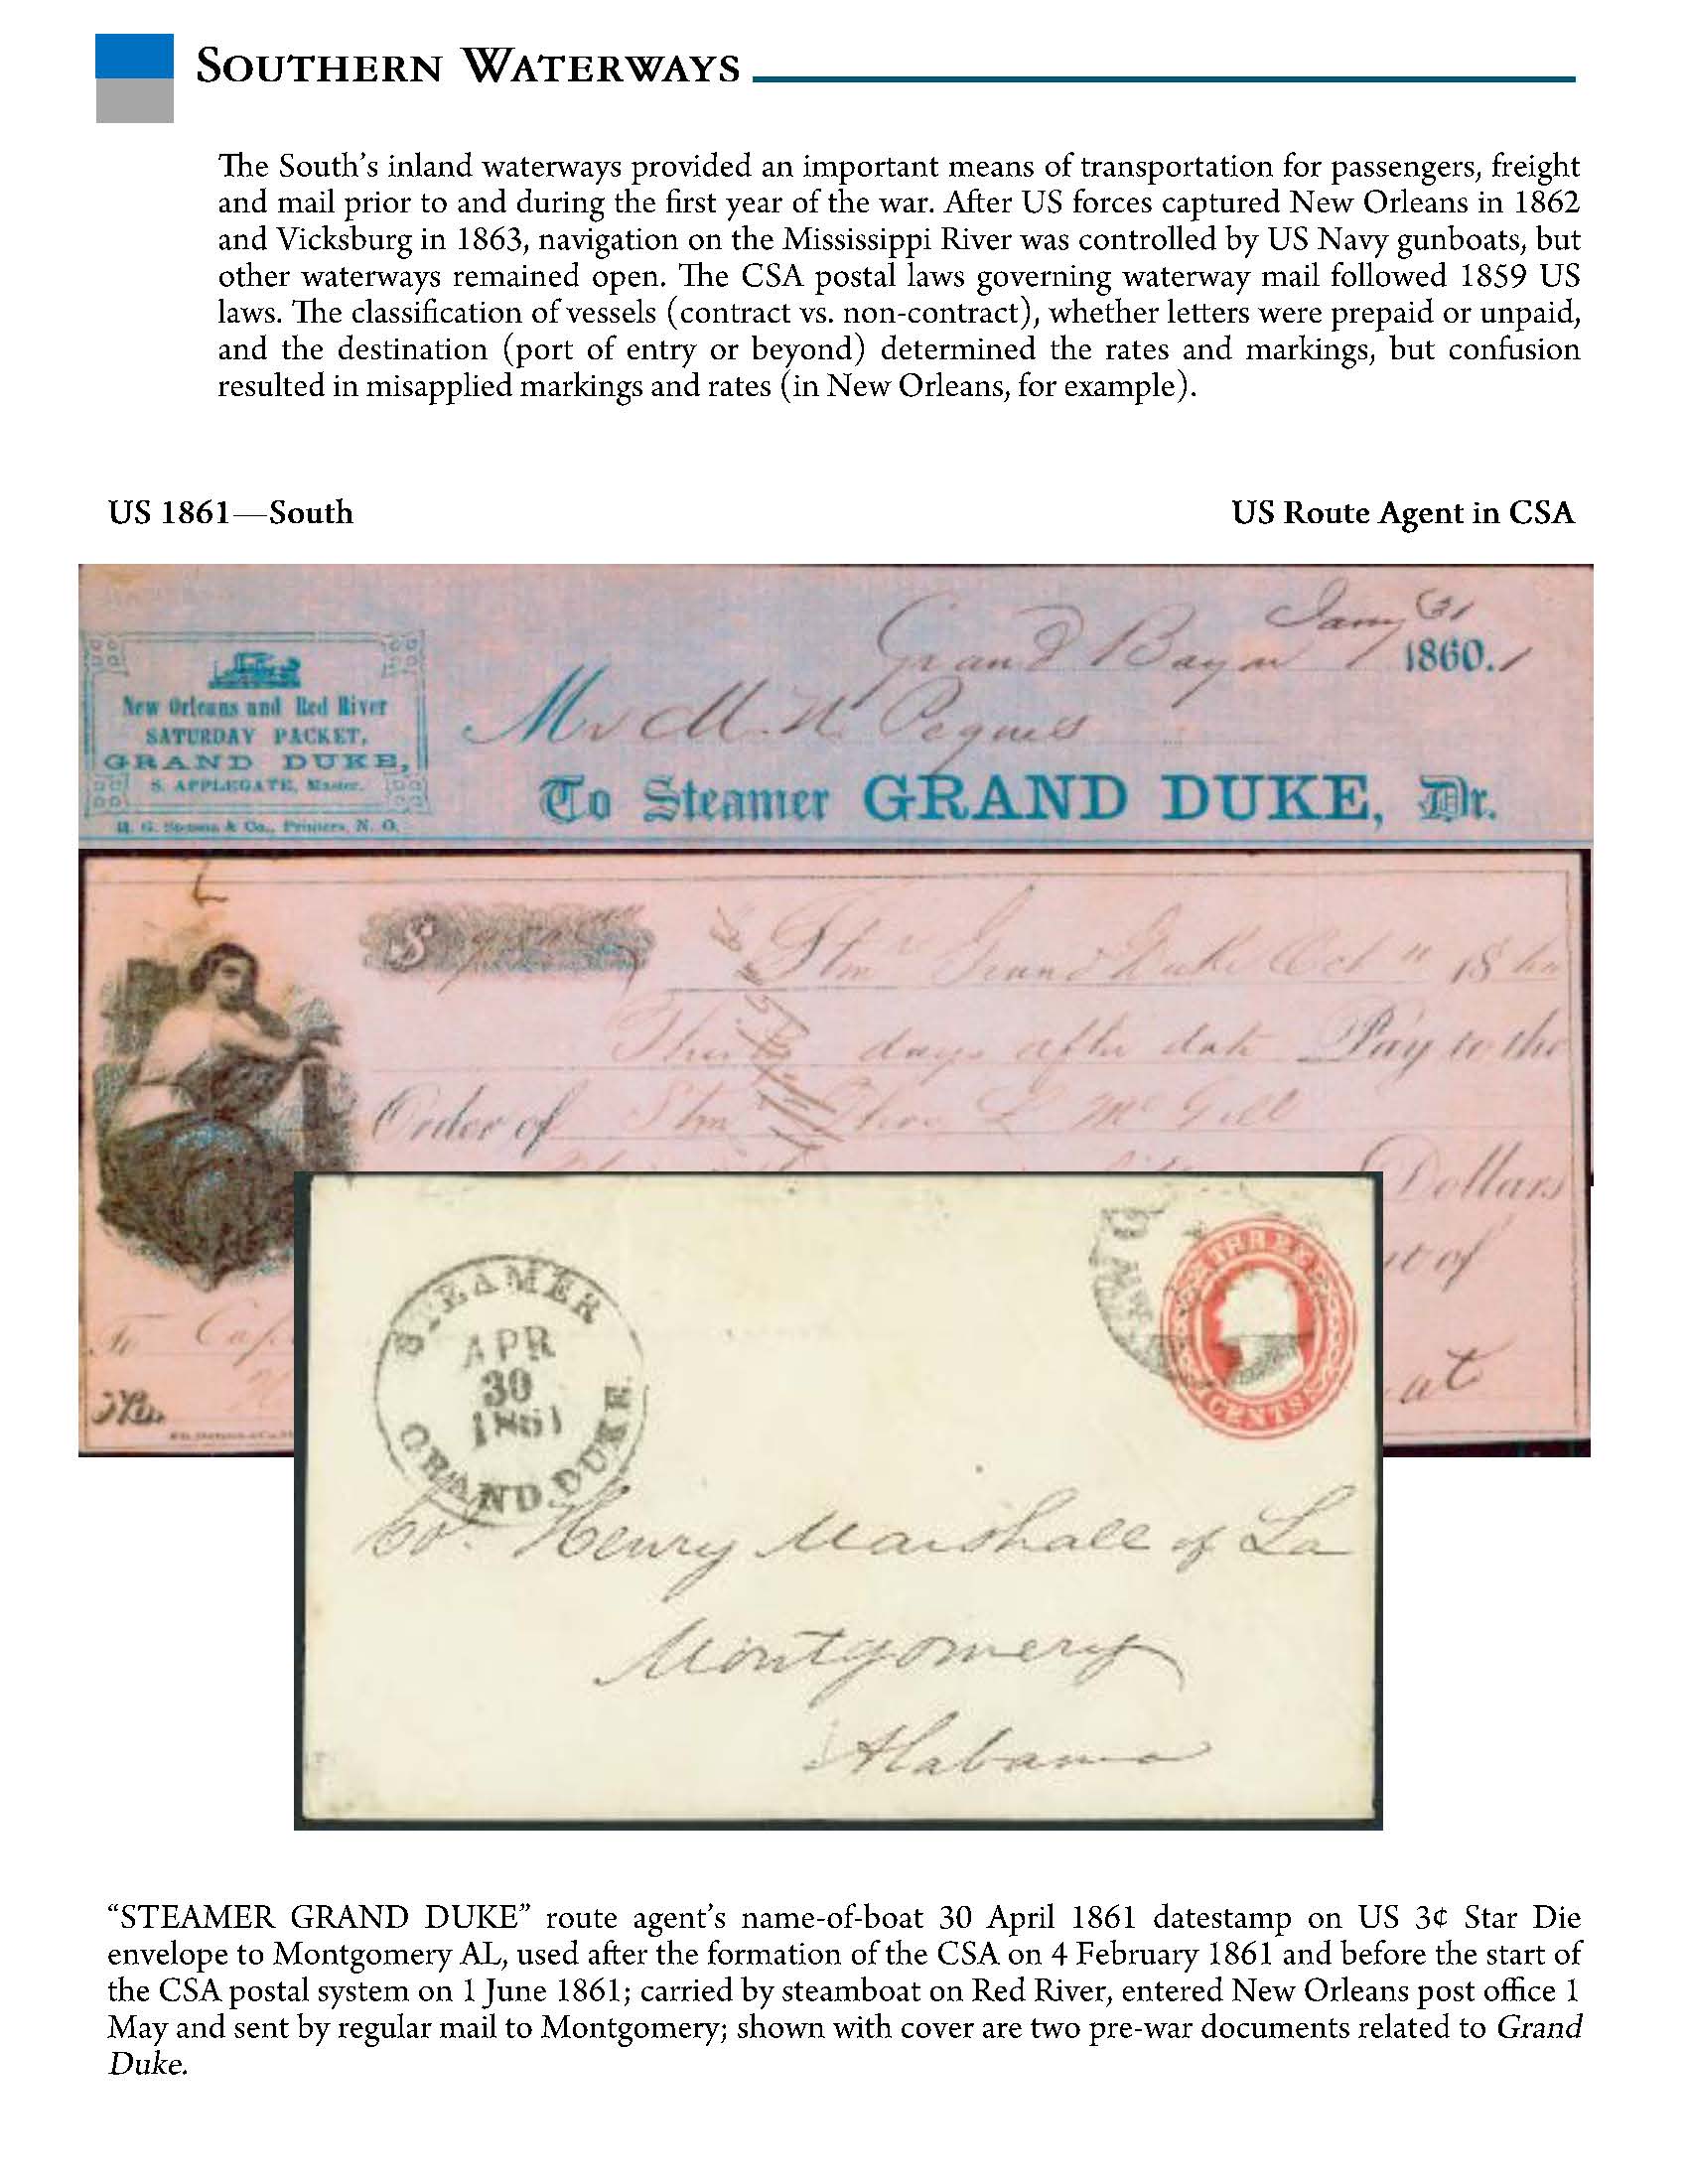 SOUTHERN WATERWAYS
The South's inland waterways provided an important means of transportation for passengers, freight
and mail prior to and during the first year of the war. After US forces captured New Orleans in 1862
and Vicksburg in 1863, navigation on the Mississippi River was controlled by US Navy gunboats, but
other waterways remained open. The CSA postal laws governing waterway mail followed 1859 US
laws. The classification of vessels (contract vs. non-contract), whether letters were prepaid or unpaid,
and the destination (port of entry or beyond) determined the rates and markings, but confusion
resulted in misapplied markings and rates (in New Orleans, for example).
US 1861—South
US Route Agent in CSA
Grand Bayou Jany 31
1860.1
New Orleans and Red River
SATURDAY PACKET,
GRAND DUKE,
S. APPLEGATE, Master.
& Co., Printers, N. O.
Mr M. W. Pegues
To Steamer GRAND DUKE, Dr.
$
Stmr Grand Duke Oct 11 1860
Thirty days after date Pay to the
Order of Stmr L McGill
Dollars
of
To Cap
at
STEAMER
APR
30
1861
GRAND DUKE.
THREE
CENTS
Henry Marshall of La
Montgomery
Alabama
“STEAMER GRAND DUKE” route agent's name-of-boat 30 April 1861 datestamp on US 3¢ Star Die
envelope to Montgomery AL, used after the formation of the CSA on 4 February 1861 and before the start of
the CSA postal system on 1 June 1861; carried by steamboat on Red River, entered New Orleans post office 1
May and sent by regular mail to Montgomery; shown with cover are two pre-war documents related to Grand
Duke.